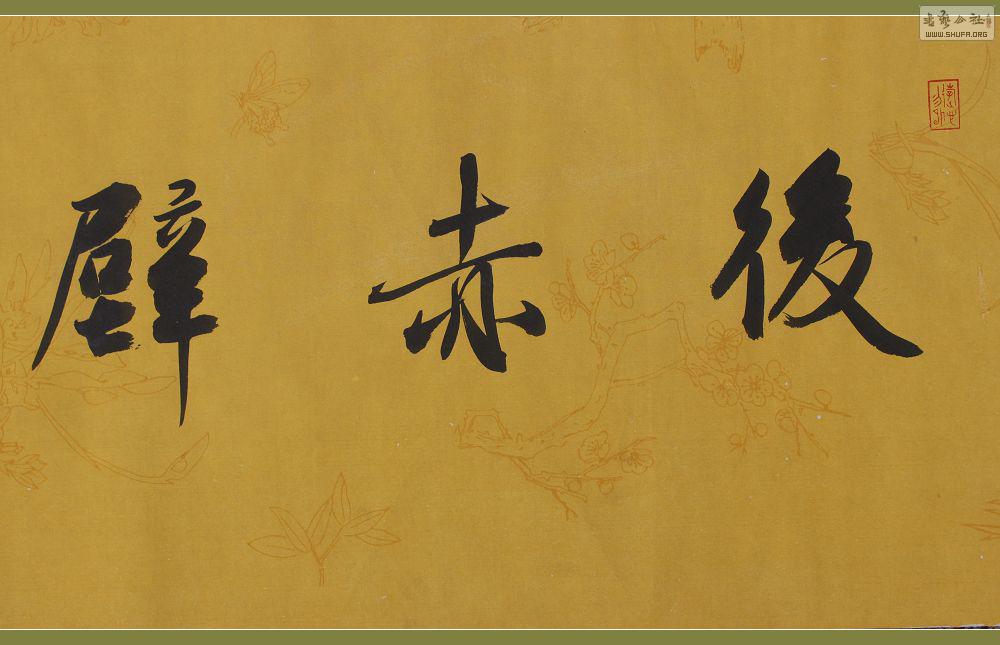 後赤壁
书藝公社
WWW.SHUFA.ORG